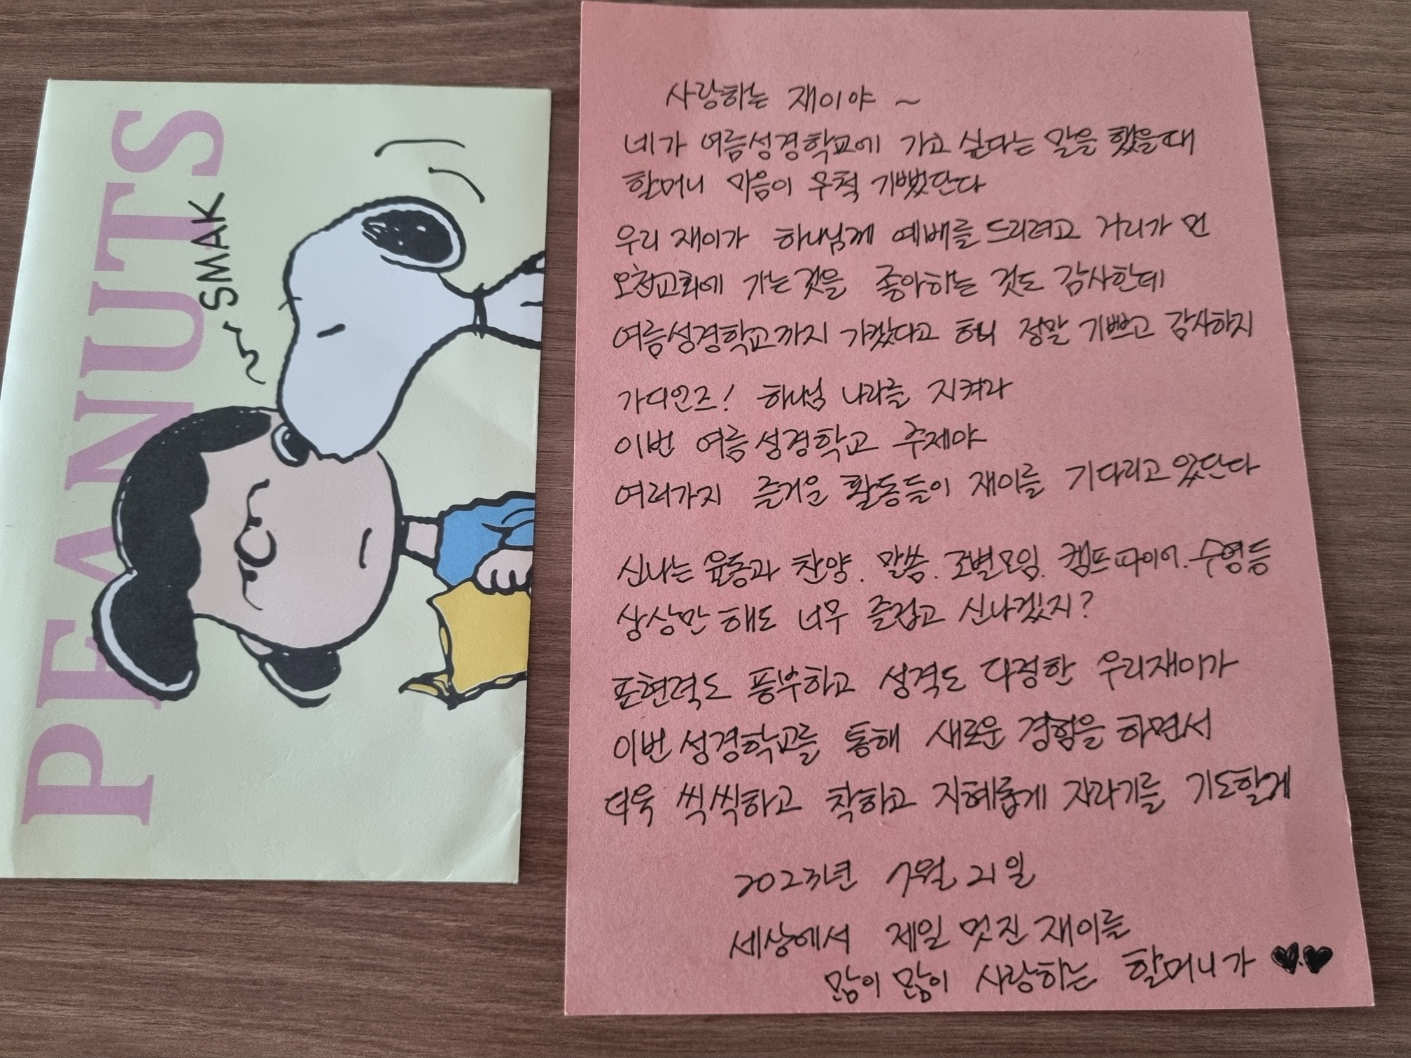 PEANUTS
SMAK
사랑하는 재이야 ~
네가 여름성경학교에 가고 싶다는 말을 했을때
할머니 마음이 무척 기뻤단다
우리 재이가 하나님께 예배를 드리려고 거리가 먼
오천교회에 가는것을 좋아하는 것도 감사한데
여름성경학교까지 가겠다고 하니 정말 기쁘고 감사하지
가디언즈! 하나님 나라를 지켜라
이번 여름성경학교 주제야
여러가지 즐거운 활동들이 재이를 기다리고 있단다
신나는 율동과 찬양. 말씀. 조별모임. 캠프파이어. 수영등
상상만 해도 너무 즐겁고 신나겠지?
표현력도 풍부하고 성격도 다정한 우리재이가
이번 성경학교를 통해 새로운 경험을 하면서
더욱 씩씩하고 착하고 지혜롭게 자라기를 기도할게
2023년 7월 21일
세상에서 제일 멋진 재이를
많이 많이 사랑하는 할머니가 ♥.♥